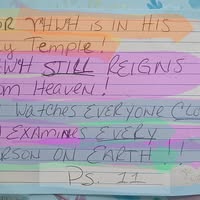 OR YHWH IS IN HIS
LY TEMPLE!
HWH STILL REIGNS
OM HEAVEN!
WATCHES EVERYONE CLO
EXAMINES EVERY
ERSON ON EARTH!!
Ps. 11